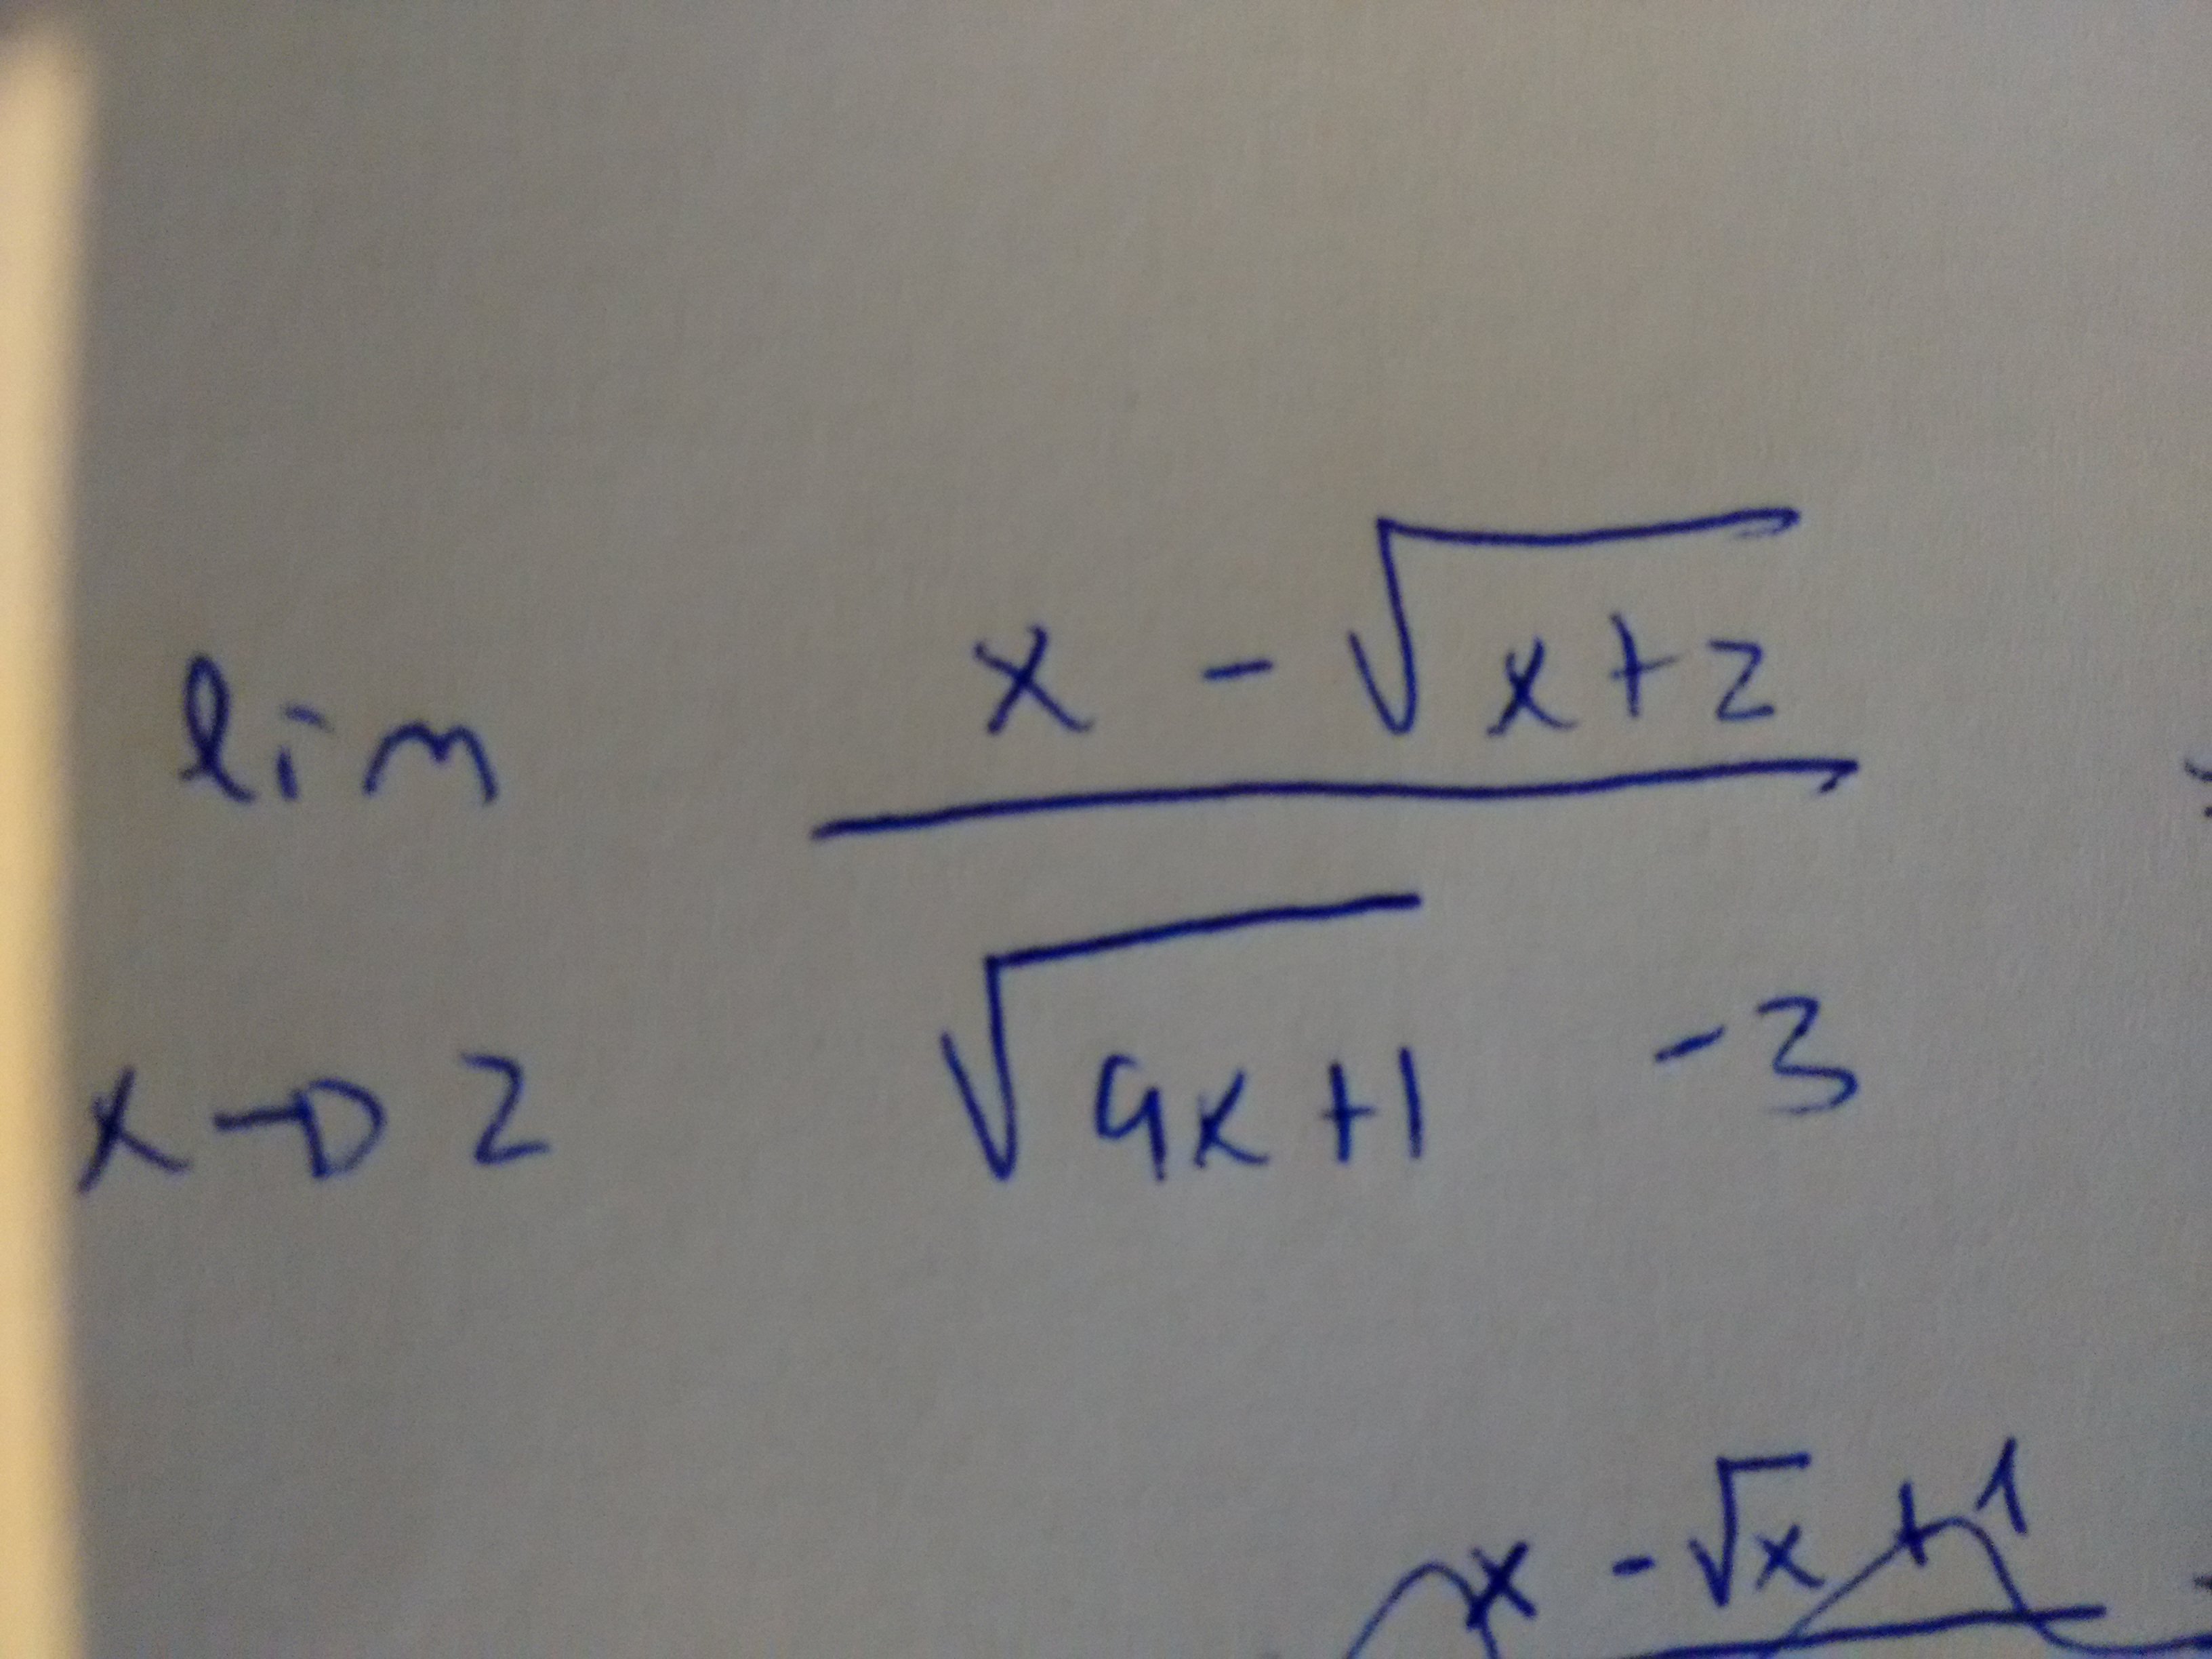 lim x - √(x+2)
x→2 √(4x+1) -3
x - √x + 1